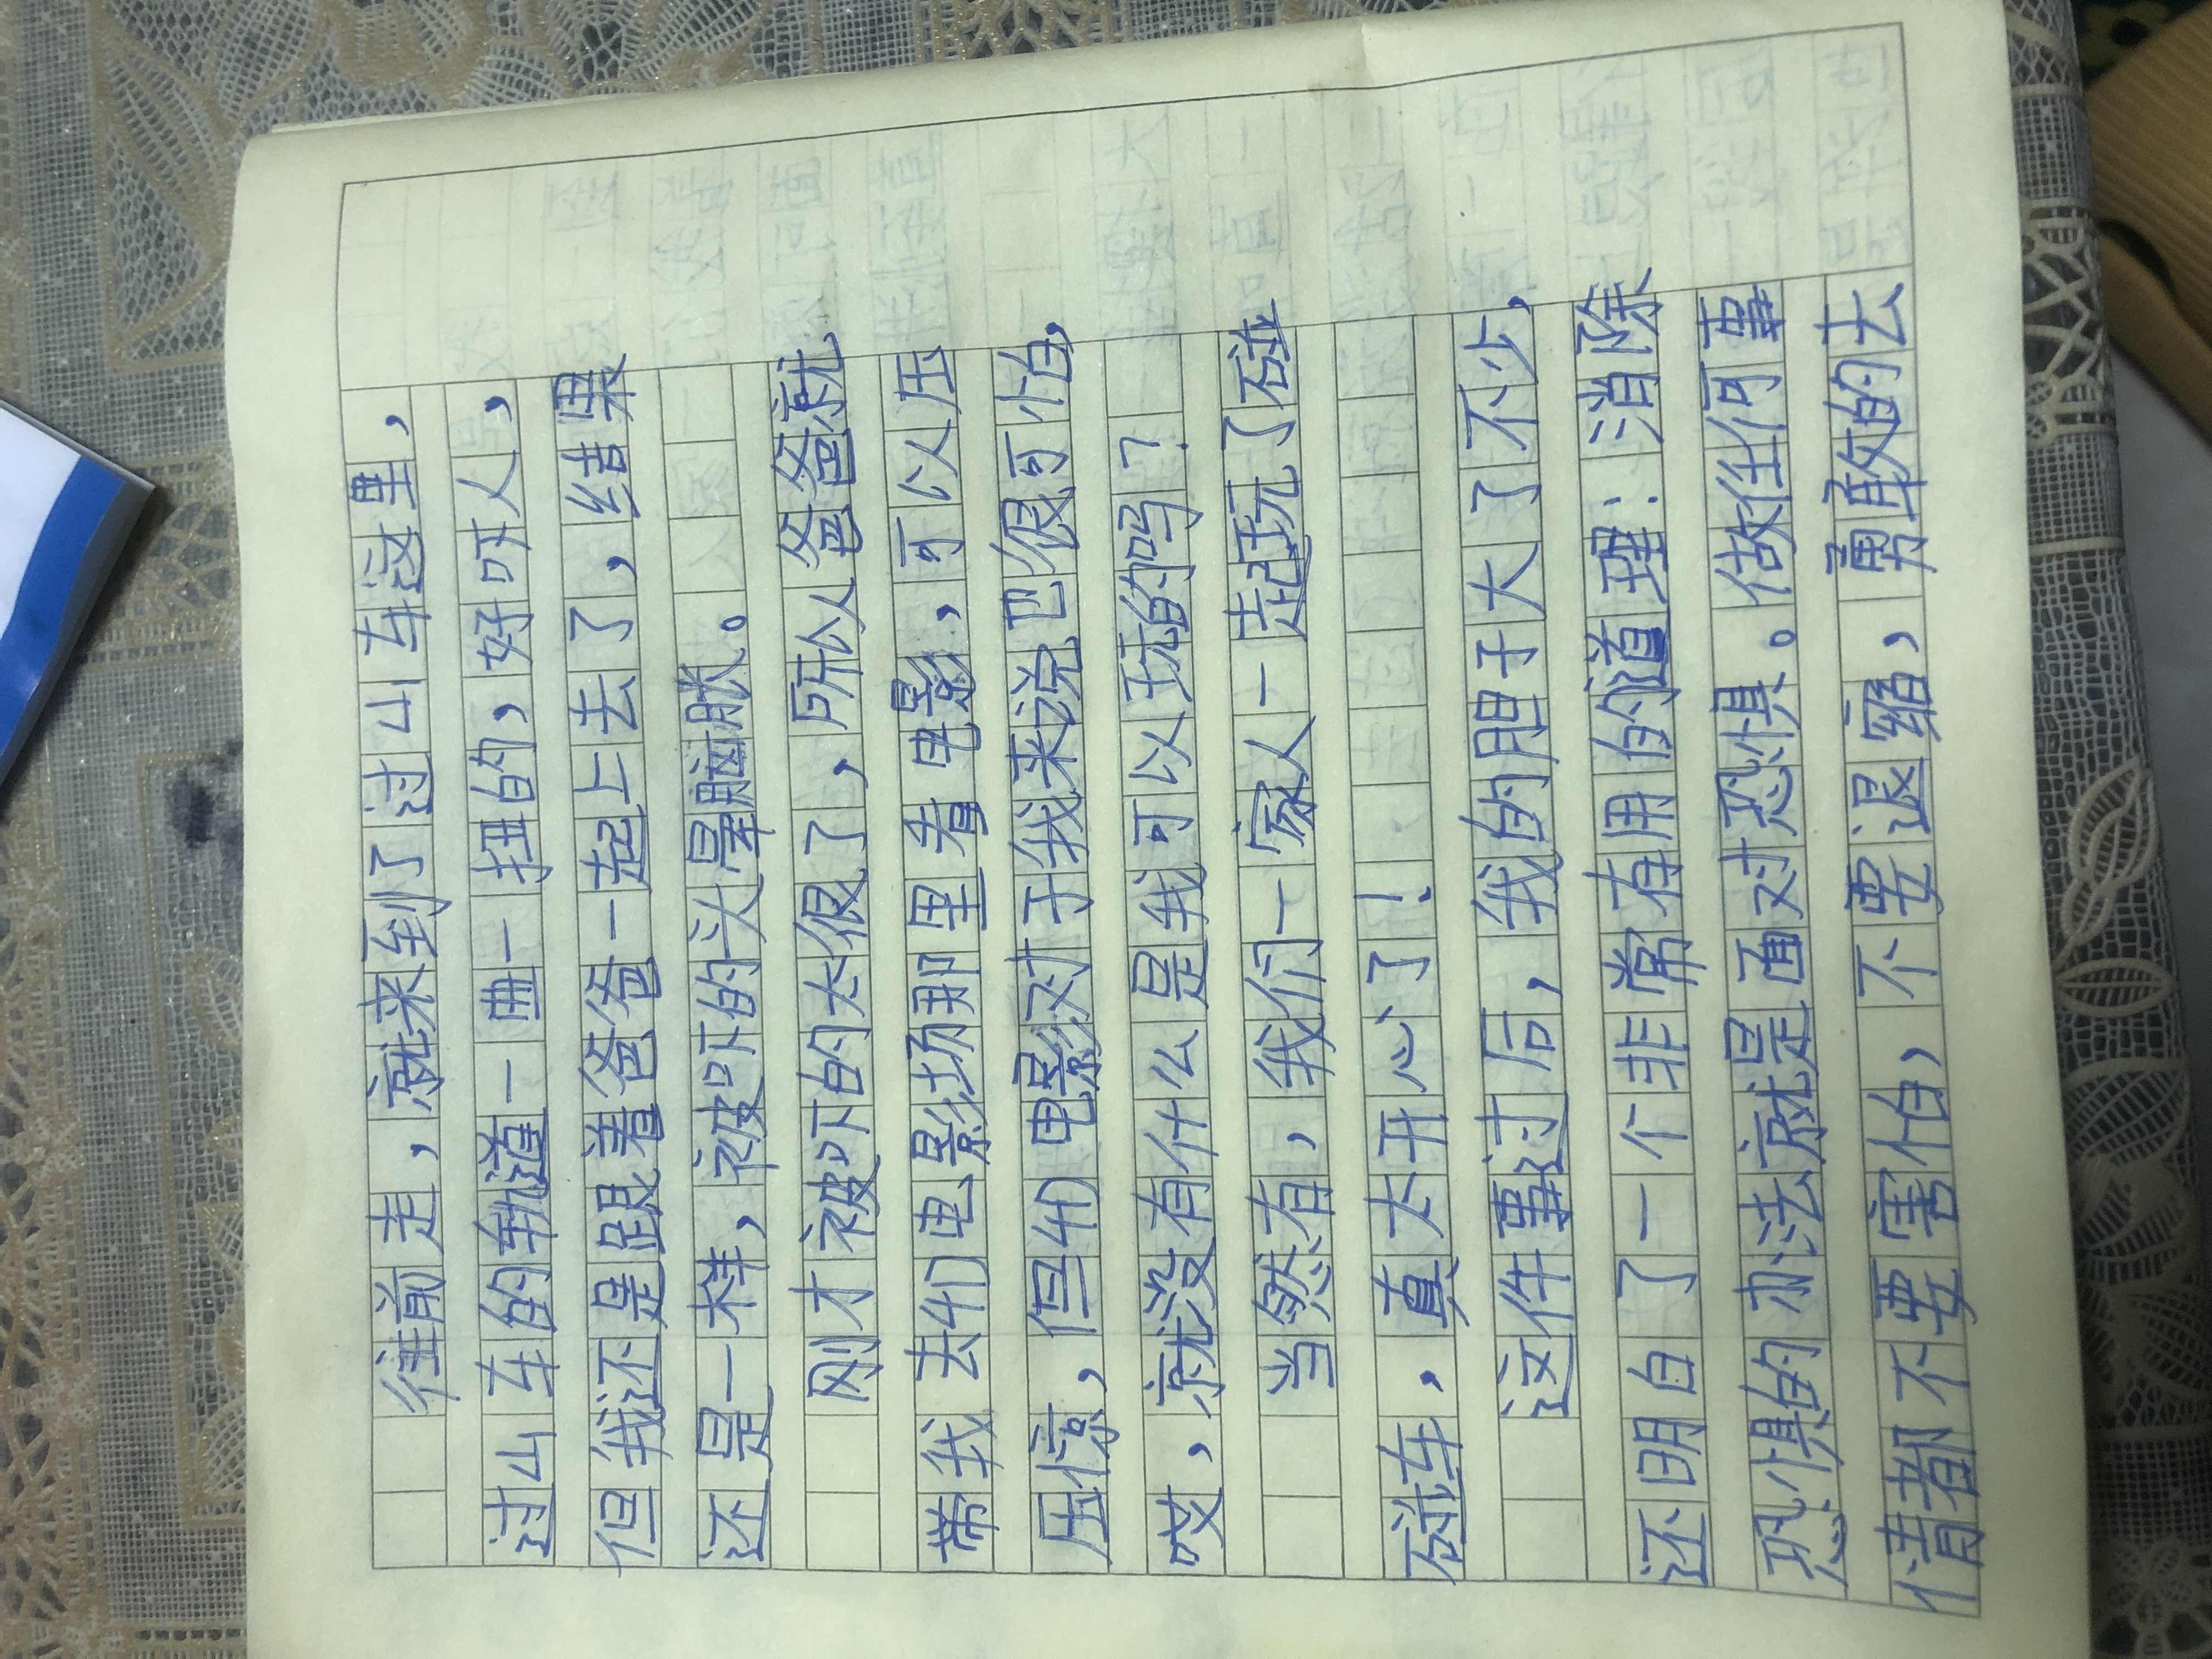 往前走，就来到了过山车这里，
过山车的轨道一曲一扭的，好吓人，
但我还是跟着爸爸一起上去了，结果
还是一样，被吓的头晕脑胀。
刚才被吓的太很了，所以爸爸就
带我去4D电影场那里看电影，可以压
压惊，但4D电影对于我来说也很可怕，
哎，就没有什么是我可以玩的吗？
当然有，我们一家人一起玩了碰
碰车，真太开心了！
这件事过后，我的胆子大了不少，
还明白了一个非常有用的道理：消除
恐惧的办法就是面对恐惧。做任何事
情都不要害怕，不要退缩，勇敢的去